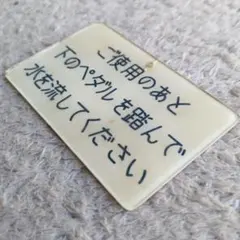 ご使用のあと
下のペダルを踏んで
水を流してください